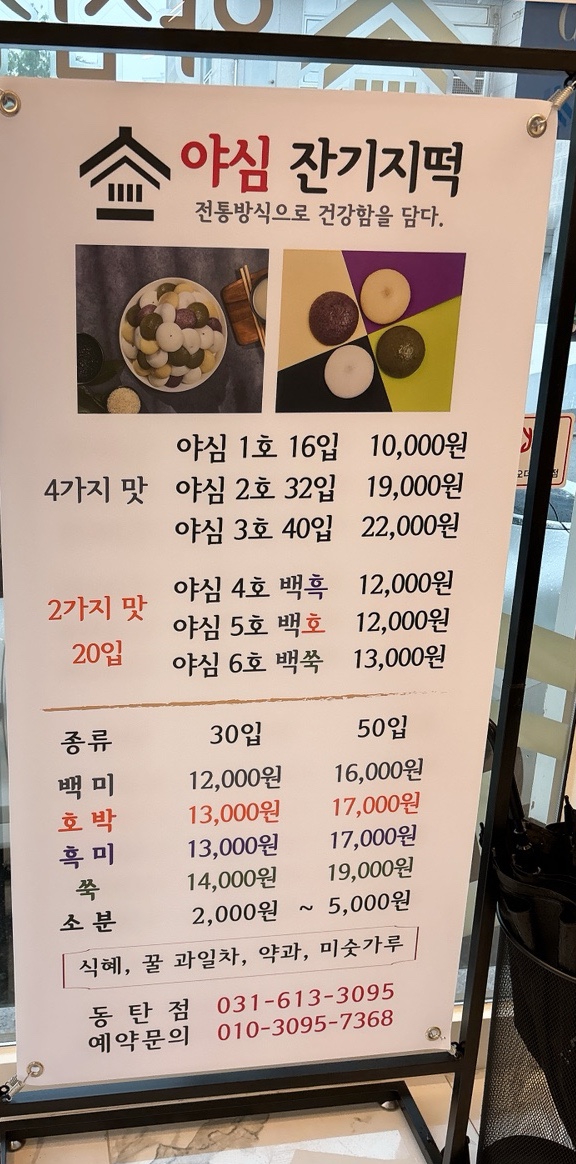 야심 잔기지떡
전통방식으로 건강함을 담다.
4가지 맛
야심 1호 16입 10,000원
야심 2호 32입 19,000원
야심 3호 40입 22,000원
2가지 맛
20입
야심 4호 백흑 12,000원
야심 5호 백호 12,000원
야심 6호 백쑥 13,000원
종류 30입 50입
백미 12,000원 16,000원
호박 13,000원 17,000원
흑미 13,000원 17,000원
쑥 14,000원 19,000원
소분 2,000원 ~ 5,000원
식혜, 꿀 과일차, 약과, 미숫가루
동탄점 031-613-3095
예약문의 010-3095-7368